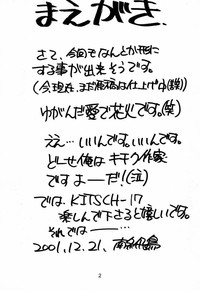 まえがき.
さて、今回もなんとか形に
する事が出来そうです。
(今現在、まだ原稿は仕上げ中(談笑))
ゆがんだ愛で花火です。(笑)
ええ…いいんです。いいんです。
どーせ俺はキチク作家
ですよーだ!(泣)
では、KITSCH-17
楽しんで下さると嬉しいです。
それでは——
2001.12.21.
2